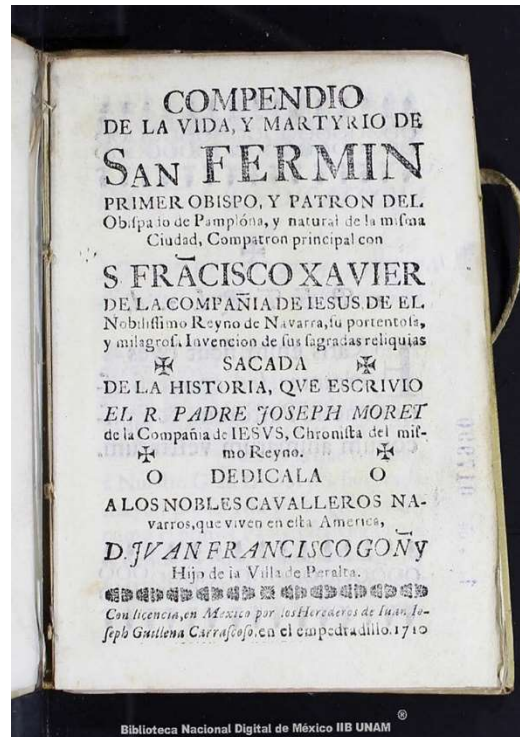 COMPENDIO
DE LA VIDA, Y MARTYRIO DE
SAN FERMIN
PRIMER OBISPO, Y PATRON DEL
Obispado de Pamplóna, y natural de la misma
Ciudad, Compatron principal con
S. FRÃCISCO XAVIER
DE LA COMPAÑIA DE IESUS, DE EL
Nobilissimo Reyno de Navarra, su portentosa,
y milagrosa Invencion de sus sagradas reliquias
✠ SACADA ✠
DE LA HISTORIA, QVE ESCRIVIO
EL R. PADRE JOSEPH MORET
de la Compañia de IESVS, Chronista del mis-
✠ mo Reyno. ✠
O DEDICALA O
A LOS NOBLES CAVALLEROS NA-
varros, que viven en esta America,
D. JVAN FRANCISCO GOÑy
Hijo de la Villa de Peralta.
Con licencia, en Mexico por los Herederos de Iuan Io-
seph Guillena Carrascoso, en el empedradillo. 1710
Biblioteca Nacional Digital de México IIB UNAM ®